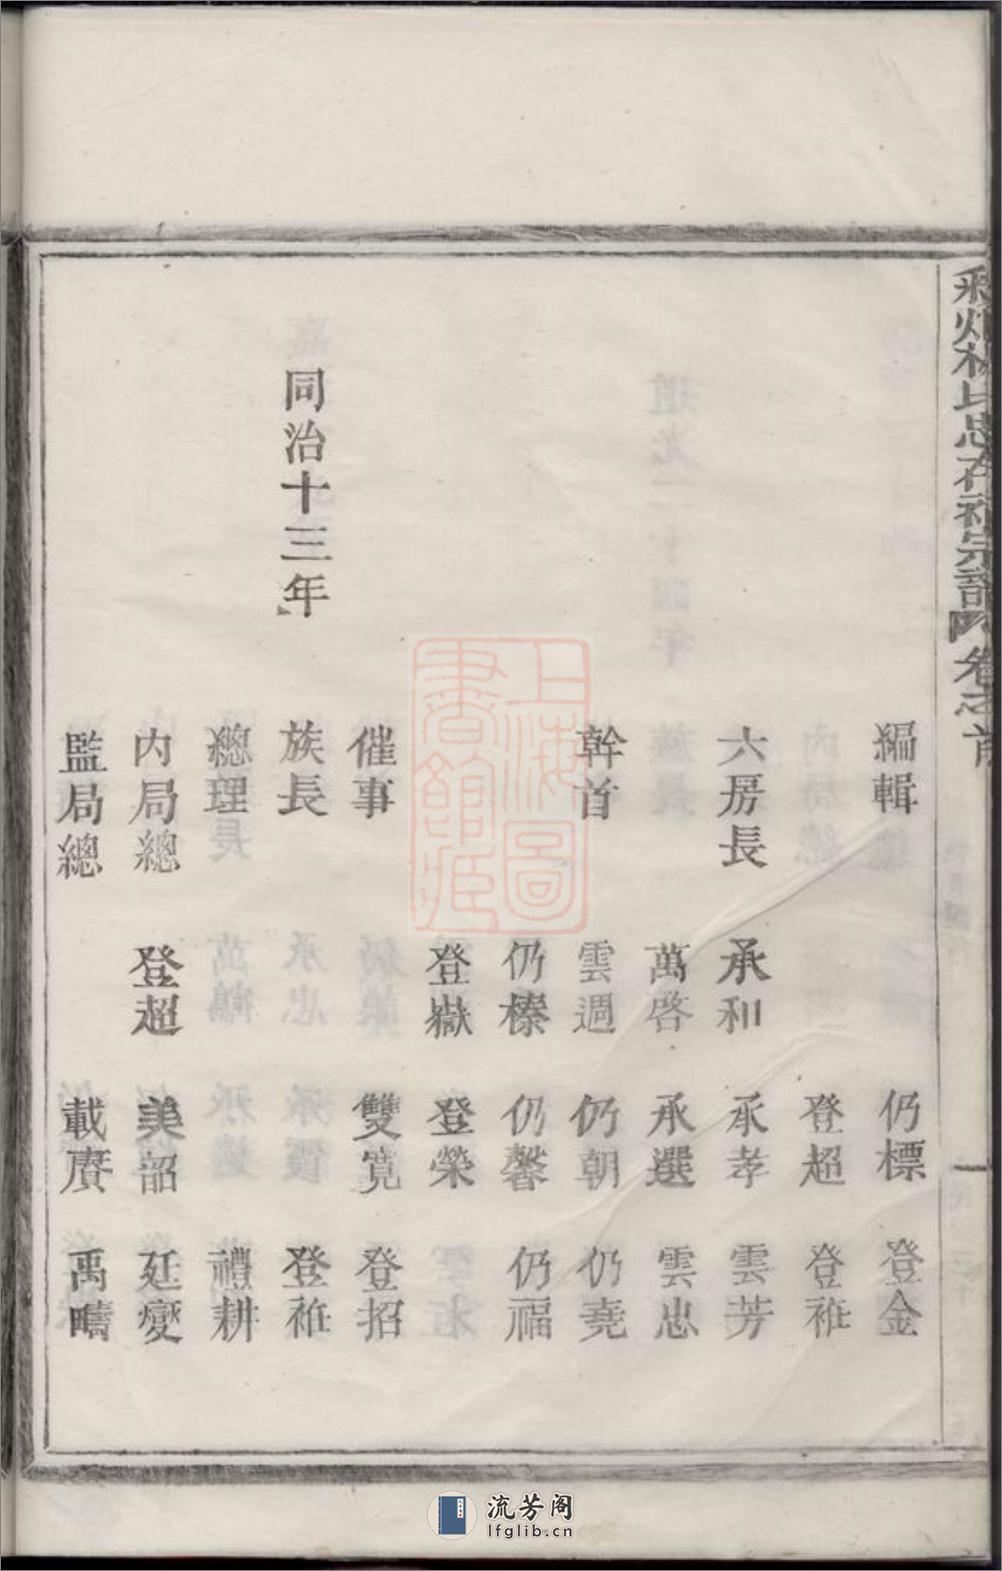 編輯 仍標 登金
登超 登雅
六房長 承和 承孝 雲芳
萬啓 承選 雲忠
幹首 雲週 仍朝 仍堯
仍榛 仍馨 仍福
登嶽 登榮
催事 雙寬 登招
同治十三年 族長 登雅
總理 禮耕
內局總 登超 美韶 廷變
監局總 載賡 禹疇
氏忠在祠宗譜 卷之首
一
上海圖書館藏
流芳阁
lfglib.cn